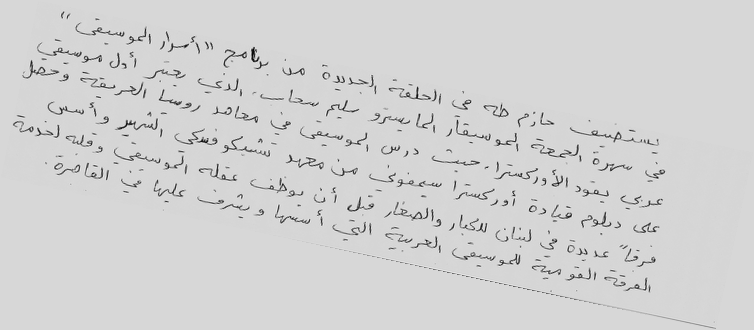 يستضيف حازم طه في الحلقة الجديدة من برنامج "أسرار الموسيقى"
في سهرة الجمعة الموسيقار المايسترو سليم سحاب، الذي يعتبر أول موسيقي
عربي يقود الأوركسترا، حيث درس الموسيقى في معاهد روسيا العريقة وحصل
على دبلوم قيادة أوركسترا سيمفوني من معهد تشيكوفسكي الشهير وأسس
فرقاً عديدة في لبنان للكبار والصغار قبل أن يوظف عقله الموسيقي وقلبه لخدمة
الفرقة القومية للموسيقى العربية التي أسسها ويشرف عليها في القاهرة.